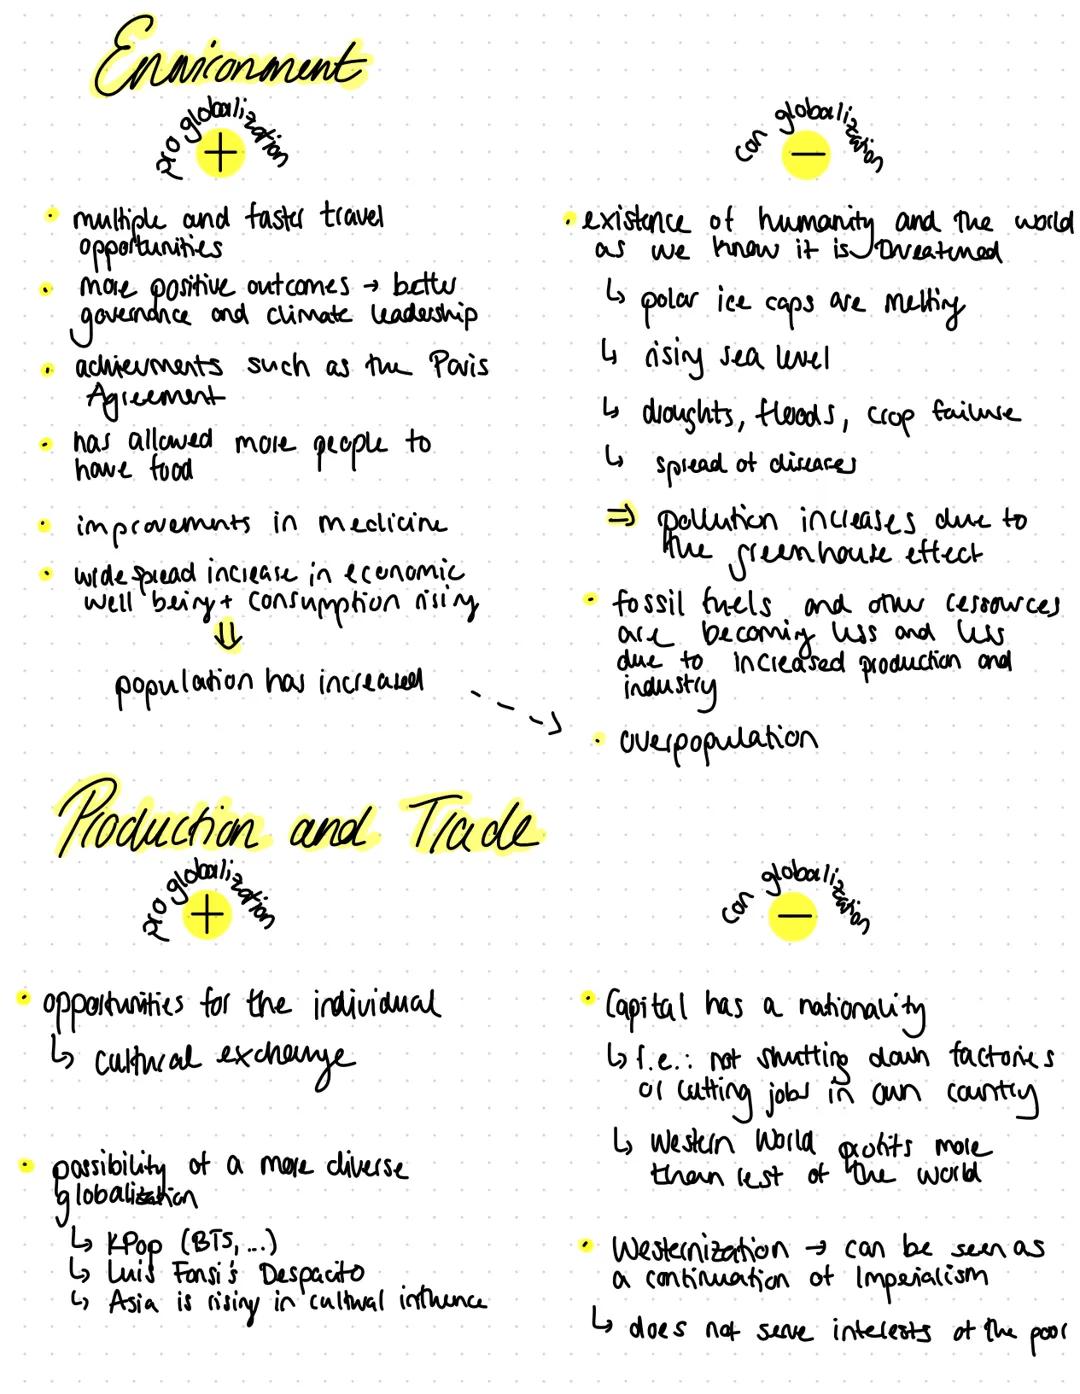 Environment
pro globalization
+
• multiple and faster travel
opportunities
• more positive outcomes → better
governance and climate leadership
• achievments such as the Paris
Agreement
• has allowed more people to
have food
• improvements in medicine
• widespread increase in economic
well being + consumption rising
⇓
population has increased
con globalization
−
• existence of humanity and the world
as we know it is threatened
↳ polar ice caps are melting
↳ rising sea level
↳ droughts, floods, crop failure
↳ spread of diseases
⇒ pollution increases due to
the greenhouse effect
• fossil fuels and other ressources
are becoming less and less
due to increased production and
industry
• overpopulation
Production and Trade
pro globalization
+
• opportunities for the individual
↳ cultural exchange
• possibility of a more diverse
globalization
↳ KPop (BTS, ...)
↳ Luis Fonsi's Despacito
↳ Asia is rising in cultural influence
con globalization
−
• Capital has a nationality
↳ f.e.: not shutting down factories
or cutting jobs in own country
↳ Western World profits more
than rest of the world
• Westernization → can be seen as
a continuation of Imperialism
↳ does not serve interests of the poor